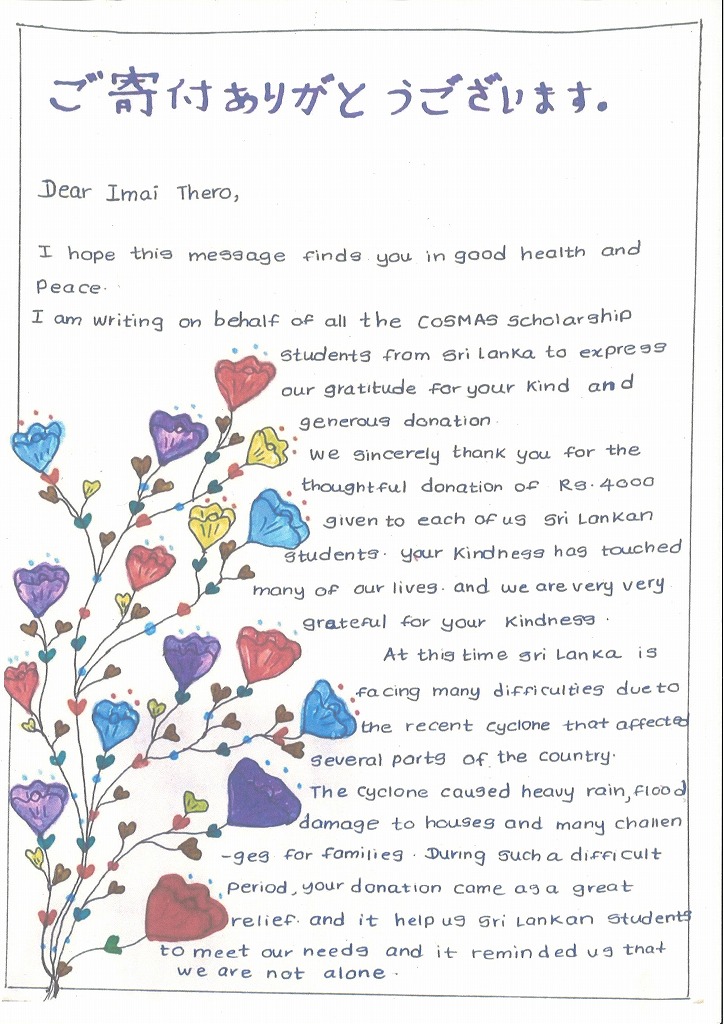 ご寄付ありがとうございます。
Dear Imai Thero,
I hope this message finds you in good health and
Peace.
I am writing on behalf of all the COSMAS scholarship
students from Sri Lanka to express
our gratitude for your kind and
generous donation.
We sincerely thank you for the
thoughtful donation of Rs.4000
given to each of us Sri Lankan
students. your kindness has touched
many of our lives. and we are very very
grateful for your kindness.
At this time Sri Lanka is
facing many difficulties due to
the recent cyclone that affected
several parts of the country.
The cyclone caused heavy rain, flood
damage to houses and many challen
-ges for families. During such a difficult
period, your donation came as a great
relief. and it help us Sri Lankan students
to meet our needs and it reminded us that
we are not alone.